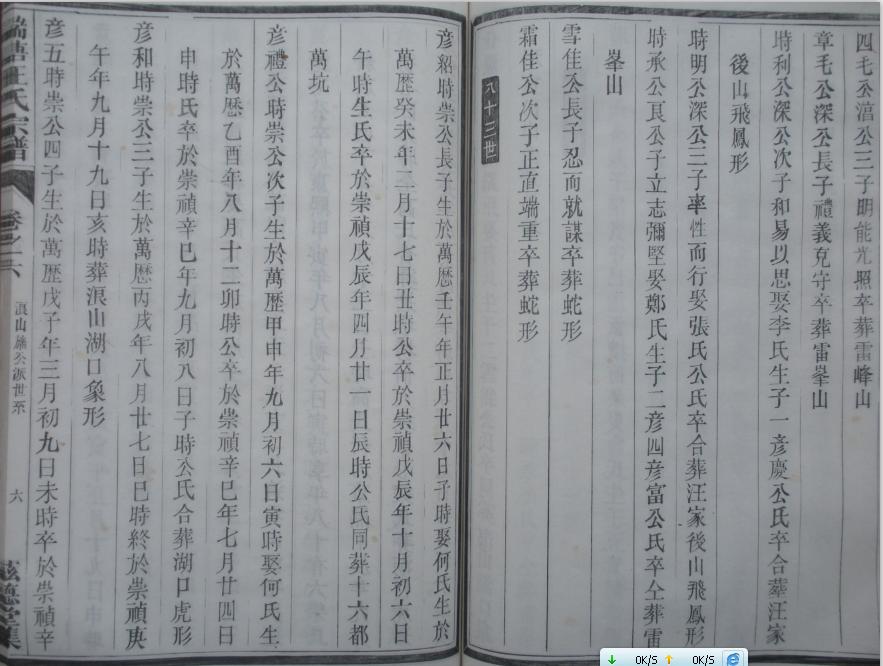 四毛公㵎公三子明能光照卒葬雷峰山
章毛公深公長子禮義克守卒葬雷峯山
時利公深公次子和易以思娶李氏生子一彥慶公氏卒合葬汪家
後山飛鳳形
時明公深公三子率性而行娶張氏公氏卒合葬汪家後山飛鳳形
時承公良公子立志彌堅娶鄭氏生子二彥四彥富公氏卒仝葬雷
峯山
雪佳公長子忍而就謀卒葬蛇形
霜佳公次子正直端重卒葬蛇形
八十三世
彥紹時崇公長子生於萬歷壬午年正月廿六日子時娶何氏生於
萬歷癸未年二月十七日丑時公卒於崇禎戊辰年十月初六日
午時生氏卒於崇禎戊辰年四月廿一日辰時公氏同葬十六都
萬坑
彥禮公時崇公次子生於萬歷甲申年九月初六日寅時娶何氏生
於萬歷乙酉年八月十二卯時公卒於崇禎辛巳年七月廿四日
申時氏卒於崇禎辛巳年九月初八日子時公氏合葬湖口虎形
彥和時崇公三子生於萬歷丙戌年八月廿七日巳時終於崇禎庚
午年九月十九日亥時葬浿山湖口象形
彥五時崇公四子生於萬歷戊子年三月初九日未時卒於崇禎辛
瑞塘王氏宗譜
卷之六
山 公派世系
六
懿德堂集
0K/S 0K/S